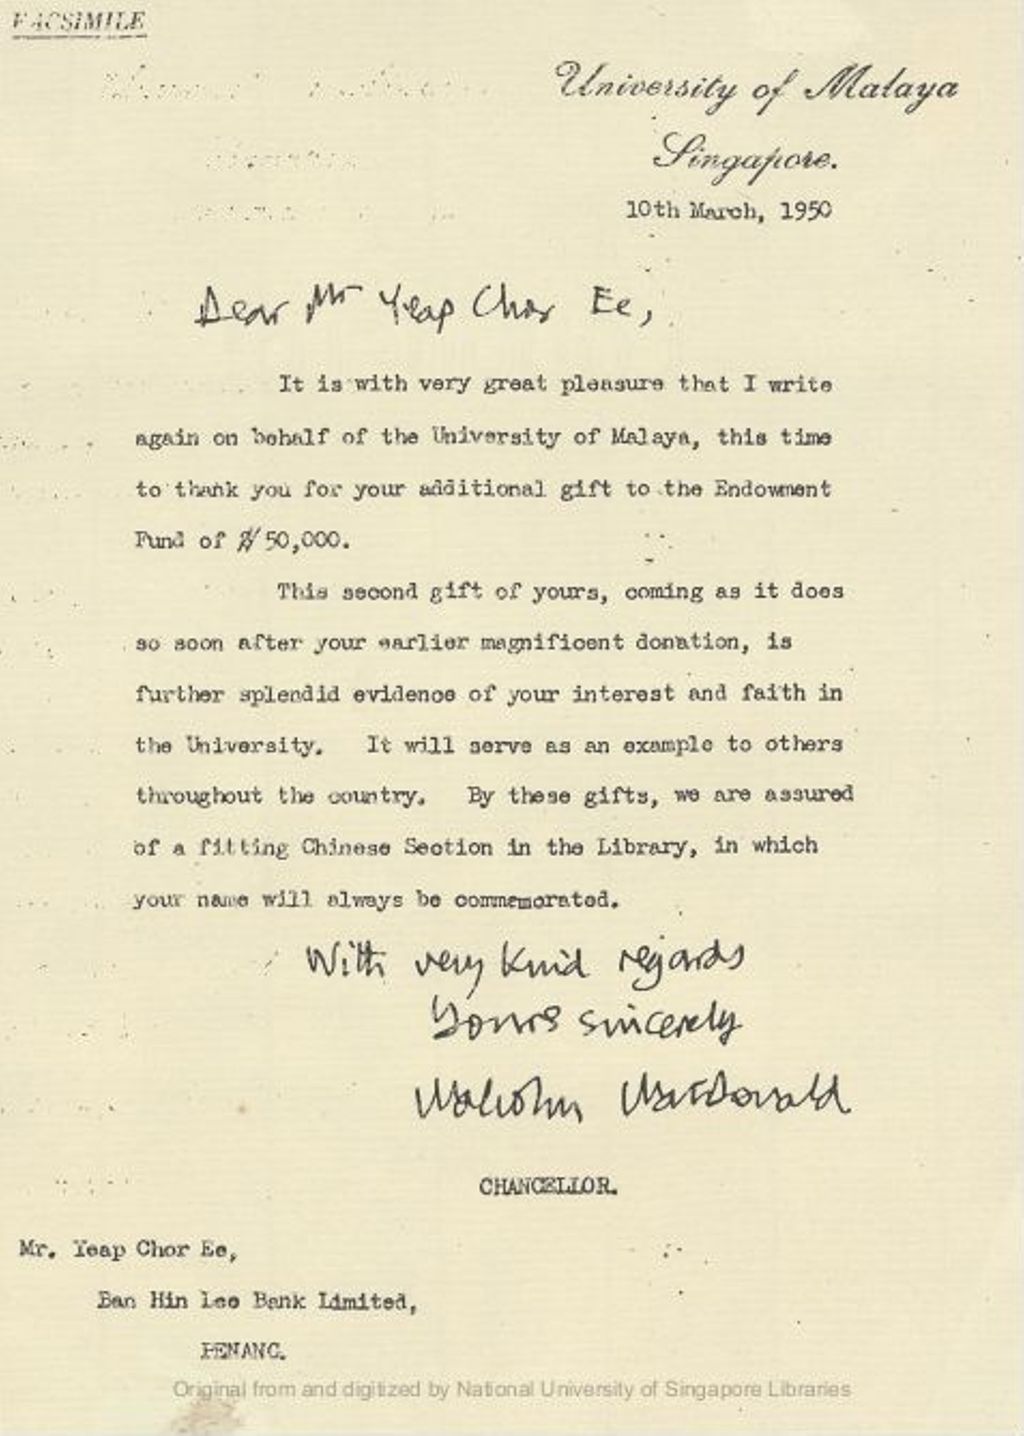 FACSIMILE
University of Malaya
Singapore.
10th March, 1950
Dear Mr Yeap Chor Ee,
It is with very great pleasure that I write
again on behalf of the University of Malaya, this time
to thank you for your additional gift to the Endowment
Fund of $50,000.
This second gift of yours, coming as it does
so soon after your earlier magnificent donation, is
further splendid evidence of your interest and faith in
the University. It will serve as an example to others
throughout the country. By these gifts, we are assured
of a fitting Chinese Section in the Library, in which
your name will always be commemorated.
With very kind regards
Yours sincerely
Malcolm MacDonald
CHANCELLOR.
Mr. Yeap Chor Ee,
Ban Hin Lee Bank Limited,
PENANG.
Original from and digitized by National University of Singapore Libraries